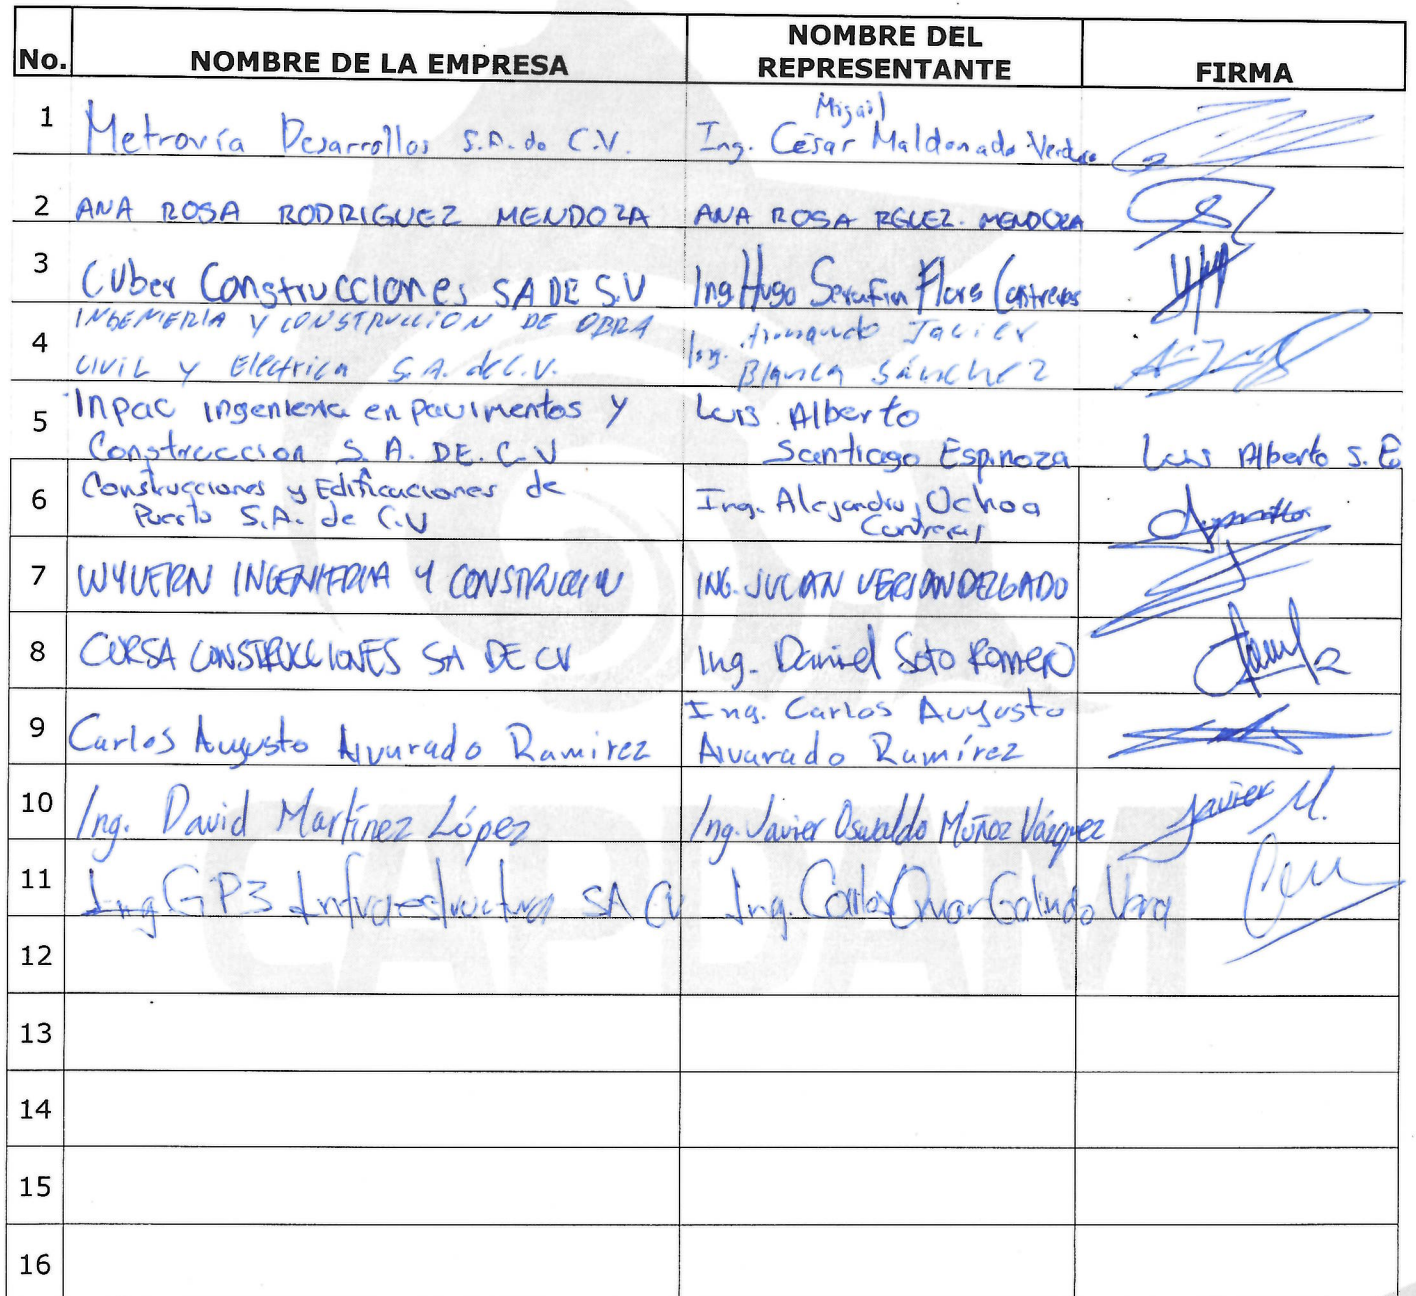 No. NOMBRE DE LA EMPRESA NOMBRE DEL REPRESENTANTE FIRMA
1 Metrovía Desarrollos S.A. de C.V. Ing. Misael César Maldonado
2 ANA ROSA RODRIGUEZ MENDOZA ANA ROSA RGUEZ. MENDOZA
3 CUber Construcciones SA DE S.V Ing Hugo Serafin Flores Contreras
4 INGENIERIA Y CONSTRUCCION DE OBRA Ing. Armando Javier
CIVIL Y Eléctrica S.A. de C.V. Blanca Sánchez
5 Inpac ingenieria en pavimentos y Luis Alberto
Construccion S. A. DE. C.V Santiago Espinoza Luis Alberto S. E
6 Construcciones y Edificaciones de Ing. Alejandro Ochoa
Puerto S.A. de C.V Contreras
7 WYVERN INGENIERIA Y CONSTRUCCION ING. JULIAN DELGADO
8 CURSA CONSTRUCCIONES SA DE CV Ing. Daniel Soto Romero
9 Carlos Augusto Alvarado Ramirez Ing. Carlos Augusto
Alvarado Ramírez
10 Ing. David Martínez López Ing. Javier Oswaldo Muñoz Vázquez Javier M.
11 Ing GP3 Infraestructura SA CV Ing. Carlos Omar Galindo Vera
12
13
14
15
16
CAPDAM